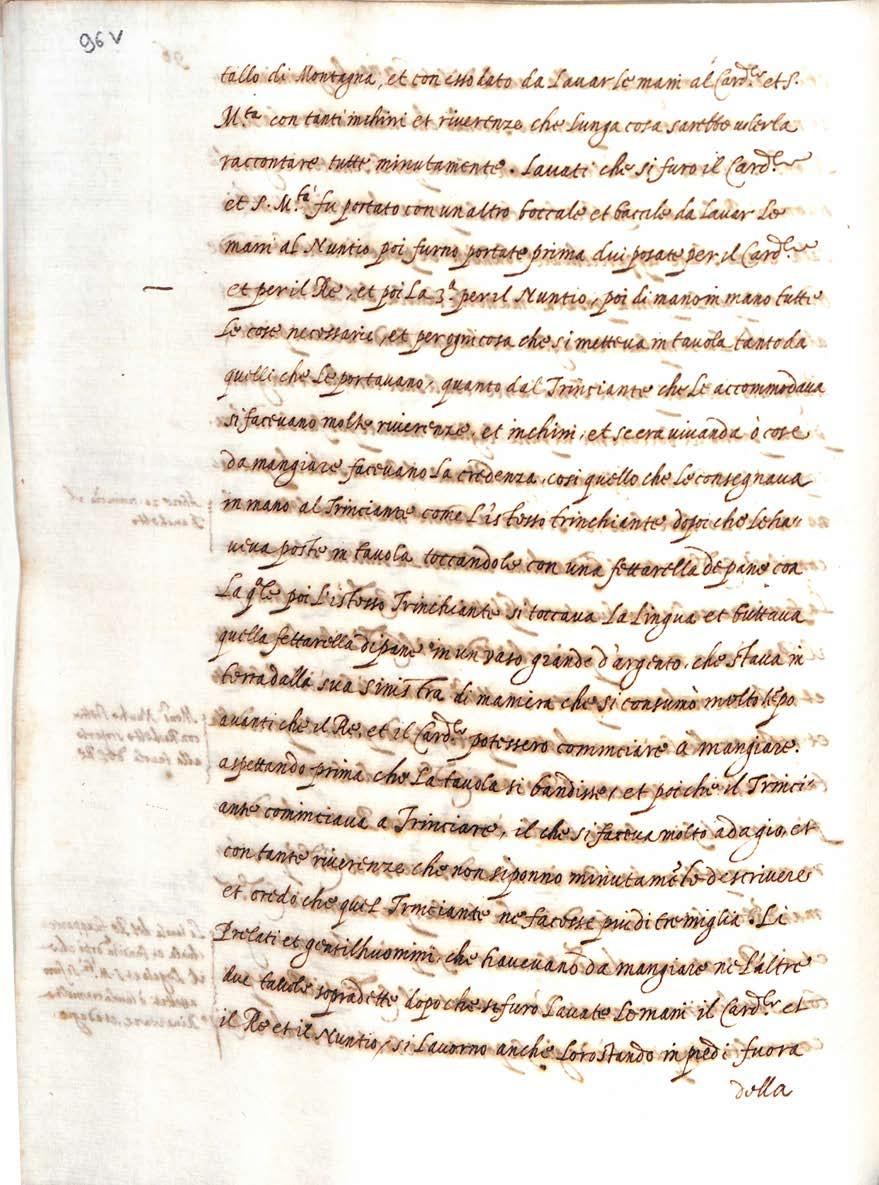 96 v
tallo di Montagna, et con esso dato da Lavar le mani al Card.le et S.
M.tà con tanti inchini et riverenze che lunga cosa sarebbe volerla
raccontare tutte minutamente. Lavati che si furo il Card.le
et S. M.tà fu portato con un altro boccale et baccile da Lavar Le
mani al Nuntio poi furno portate prima dui posate per il Card.le
et per il Re, et poi La 3.a per il Nuntio, poi di mano in mano tutte
Le cose necessarie, et per ogni cosa che si metteva in tavola tanto da
quelli che Le portavano, quanto dal Trinciante che Le accommodava
si facevano molte riverenze, et inchini, et se era vivanda ò cose
da mangiare facevano La credenza, cosi quello che Le consegnava
in mano al Trinciante come L'istesso trinchiante dopoi che Le ha-
veva poste in tavola toccandole con una fettarella de pane coa
La q.le poi L'istesso Trinchiante si toccava La Lingua et buttava
quella fettarella di pane in un vaso grande d'argento, che stava in
terra dalla sua sinistra di maniera che si consumò molto tẽpo
avanti che il Re, et il Card.le potessero cominciare a mangiare.
aspettando prima che La tavola si bandisse, et poi che il Trinci-
ante cominciava a Trinciare, il che si faceva molto adagio, et
con tante riverenze che non si ponno minutamẽte descrivere
et credo che quel Trinciante ne facesse piu di tre miglia. Li
Prelati et gentilhuomini, che havevano da mangiare ne L'altre
due tavole sopradette dopo che si furo Lavate Le mani il Card.le et
il Re et il Nuntio, si Lavorno anche Loro stando in piedi fuora
della